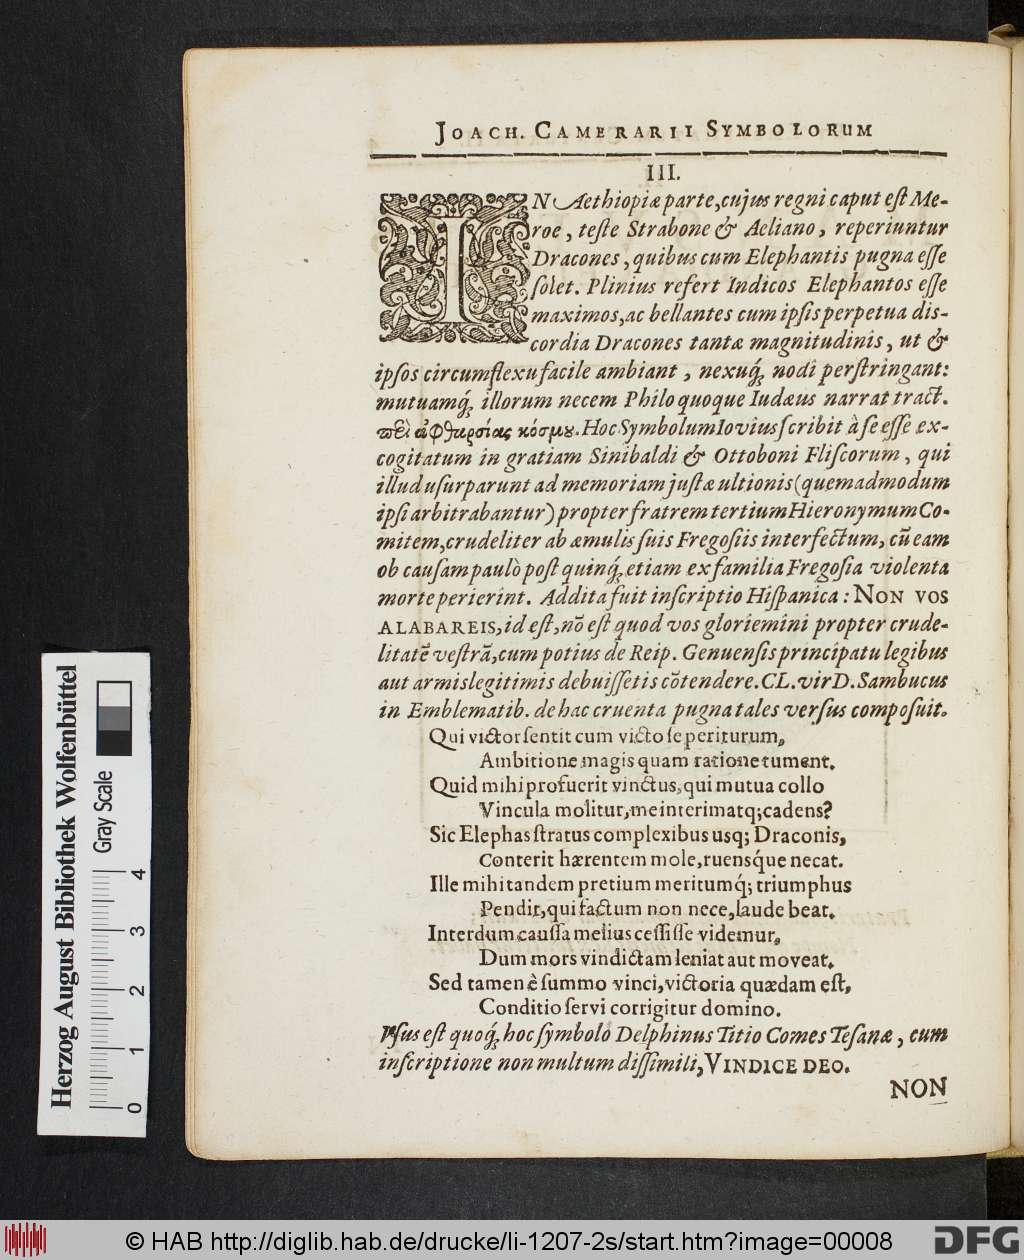 JOACH. CAMERARII SYMBOLORUM
III.
IN Aethiopiæ parte, cujus regni caput eſt Me-
roe, teſte Strabone & Aeliano, reperiuntur
Dracones, quibus cum Elephantis pugna eſſe
ſolet. Plinius refert Indicos Elephantos eſſe
maximos, ac bellantes cum ipſis perpetua diſ-
cordia Dracones tantæ magnitudinis, ut &
ipſos circumflexu facile ambiant, nexuq́; nodi perſtringant:
mutuamq́; illorum necem Philo quoque Iudæus narrat tract.
πεὶ ἀφθαρσίας κόσμȣ. Hoc Symbolum Iovius ſcribit à ſe eſſe ex-
cogitatum in gratiam Sinibaldi & Ottoboni Fliſcorum, qui
illud uſurparunt ad memoriam juſtæ ultionis (quemadmodum
ipſi arbitrabantur) propter fratrem tertium Hieronymum Co-
mitem, crudeliter ab æmulis ſuis Fregoſiis interfectum, cũ eam
ob cauſam paulò poſt quinq́; etiam ex familia Fregoſia violenta
morte perierint. Addita fuit inſcriptio Hiſpanica: NON VOS
ALABAREIS, id eſt, nõ eſt quod vos gloriemini propter crude-
litatẽ veſtrã, cum potius de Reip. Genuenſis principatu legibus
aut armis legitimis debuiſſetis cõtendere. CL. vir D. Sambucus
in Emblematib. de hac cruenta pugna tales verſus compoſuit.
Qui victor ſentit cum victo ſe periturum,
Ambitione magis quam ratione tument.
Quid mihi profuerit vinctus, qui mutua collo
Vincula molitur, me interimatq; cadens?
Sic Elephas ſtratus complexibus usq; Draconis,
Conterit hærentem mole, ruensq́ue necat.
Ille mihi tandem pretium meritumq́; triumphus
Pendit, qui factum non nece, laude beat.
Interdum cauſſa melius ceſſiſſe videmur,
Dum mors vindictam leniat aut moveat.
Sed tamen è ſummo vinci, victoria quædam eſt,
Conditio ſervi corrigitur domino.
Uſus eſt quoq́; hoc ſymbolo Delphinus Titio Comes Teſanæ, cum
inſcriptione non multum diſſimili, VINDICE DEO.
NON
Herzog August Bibliothek Wolfenbüttel
Gray Scale
0 1 2 3 4
© HAB http://diglib.hab.de/drucke/li-1207-2s/start.htm?image=00008
DFG